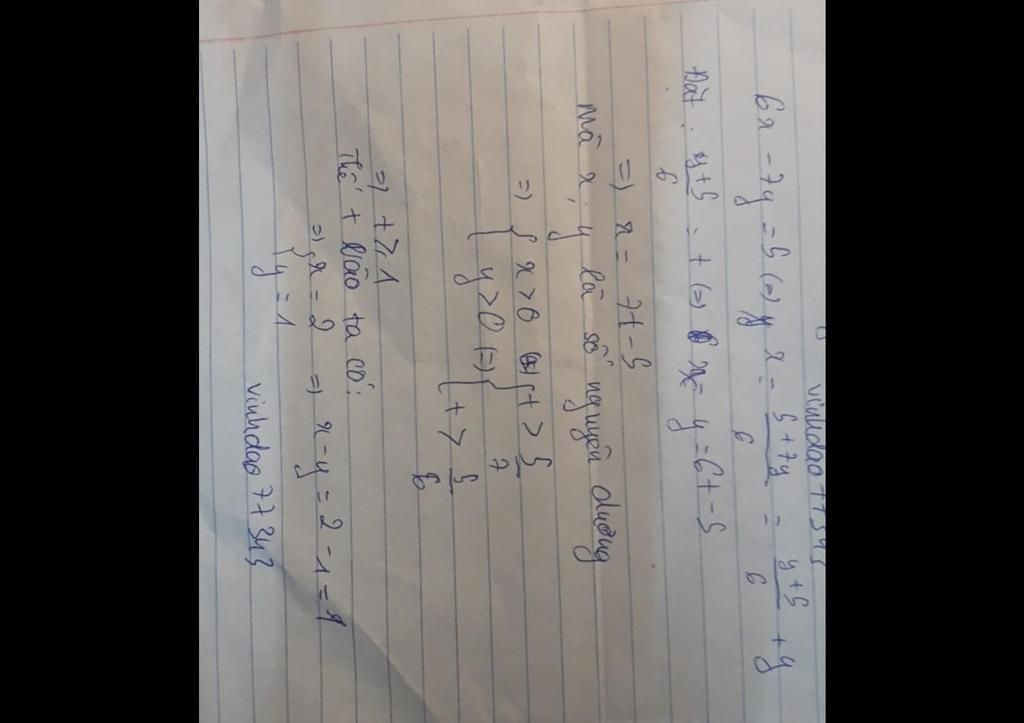 vinhdao77343
6x - 7y = 5 (=) x = (5+7y)/6 = (y+5)/6 + y
Đặt: (y+5)/6 = t (=) y = 6t - 5
=) x = 7t - 5
Mà x, y là số nguyên dương
=) { x > 0 (=) { t > 5/7
{ y > 0 { t > 5/6
=) t ≥ 1
Thế t vào ta có:
=) { x = 2 =) x - y = 2 - 1 = 1
{ y = 1
vinhdao 77343